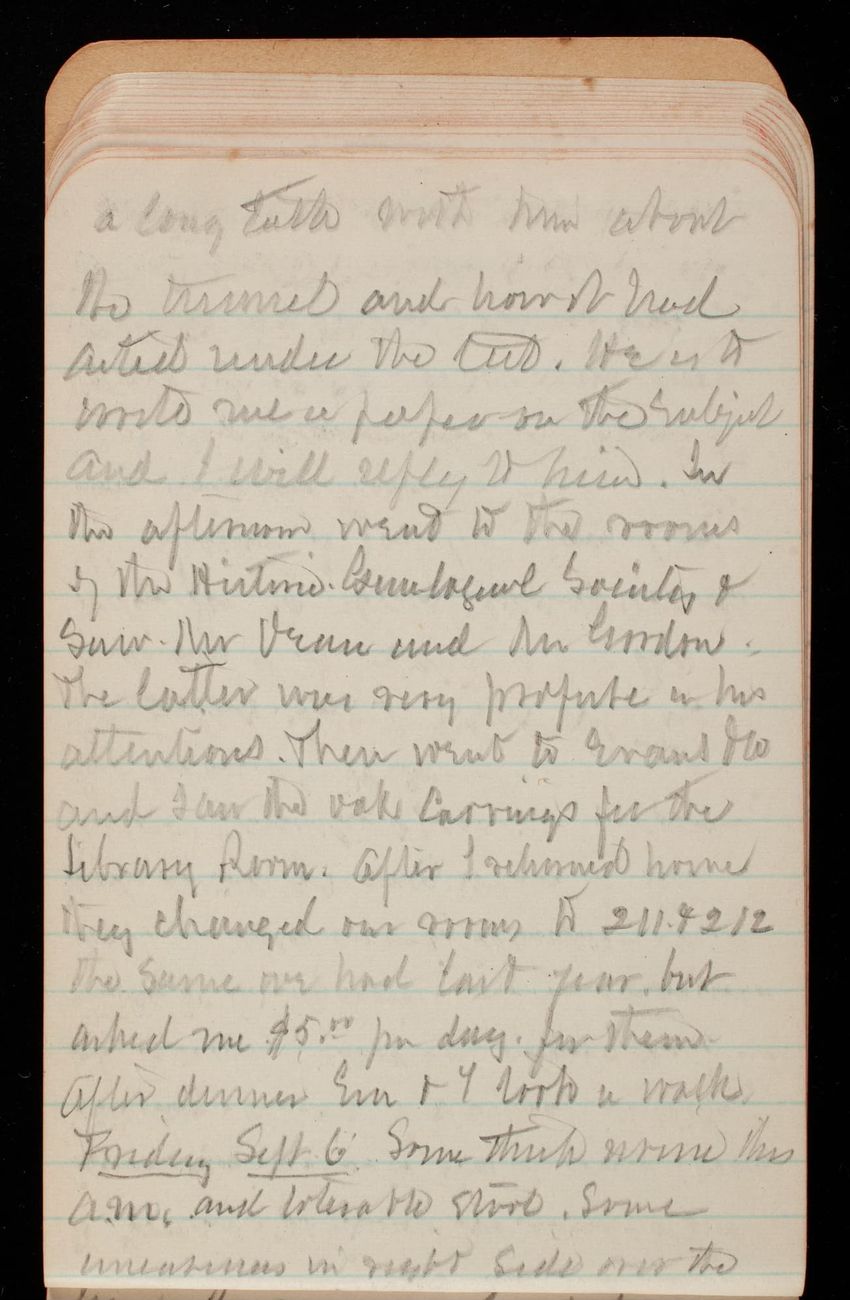 a long talk with him about
the trunnel and how it had
acted under the test. He is to
write me a paper on the subject
and I will reply to him. In
the afternoon went to the rooms
of the Historic. Genelogical Society &
Saw. Mr Dean and Mr Gordon.
The latter was very profuse in his
attentions. Then went to Evans & Co
and saw the oak carvings for the
Library Room. After I returned home
they changed our rooms to 211 & 212
the same we had last year. but
asked me $5.00 per day. for them.
After dinner Em & I took a walk.
Friday Sept 6 Some thick urine this
a.m. and tolerable stool. Some
uneasiness in right side over the